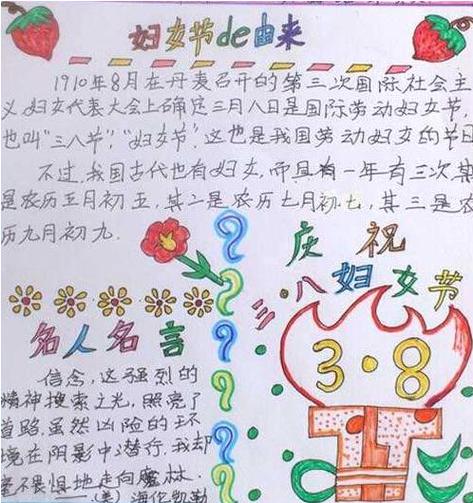 妇女节de由来
1910年8月在丹麦召开的第三次国际社会主
义妇女代表大会上确定三月八日是国际劳动妇女节,
也叫"三八节","妇女节".这也是我国劳动妇女的节日
不过,我国古代也有妇女,而且有一年有三次其
是农历五月初五,其二是农历七月初七,其三是农
历九月初九.
庆祝
三·八妇女节
3·8
名人名言
信念,这强烈的
精神搜索之光,照亮了
道路虽然凶险的环
境在阴影中潜行.我却
毫不畏惧地走向魔林.
——(美)海伦凯勒